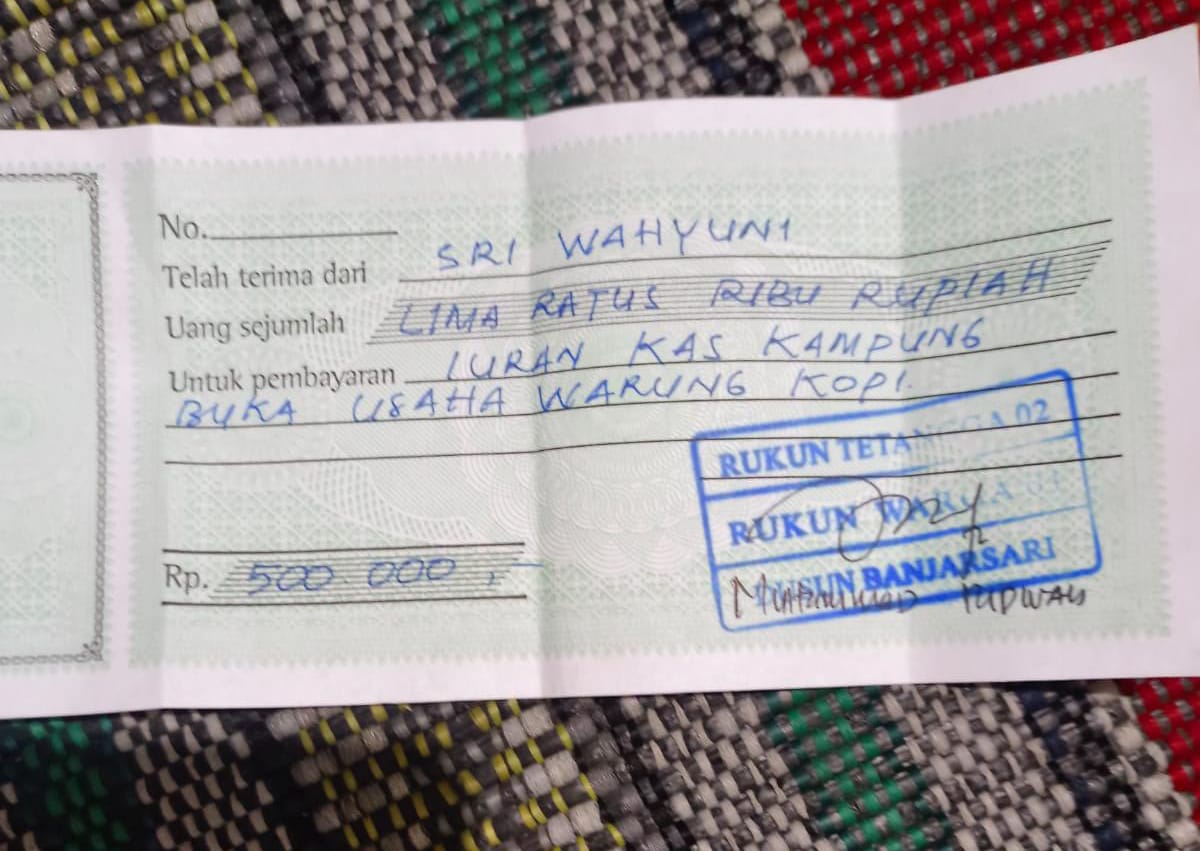 No.
Telah terima dari SRI WAHYUNI
Uang sejumlah LIMA RATUS RIBU RUPIAH
Untuk pembayaran IURAN KAS KAMPUNG
BUKA USAHA WARUNG KOPI.
RUKUN TETANGGA 02
RUKUN WARGA
DUSUN BANJARSARI
Rp. 500.000,-
MUHAMMAD RIDWAN